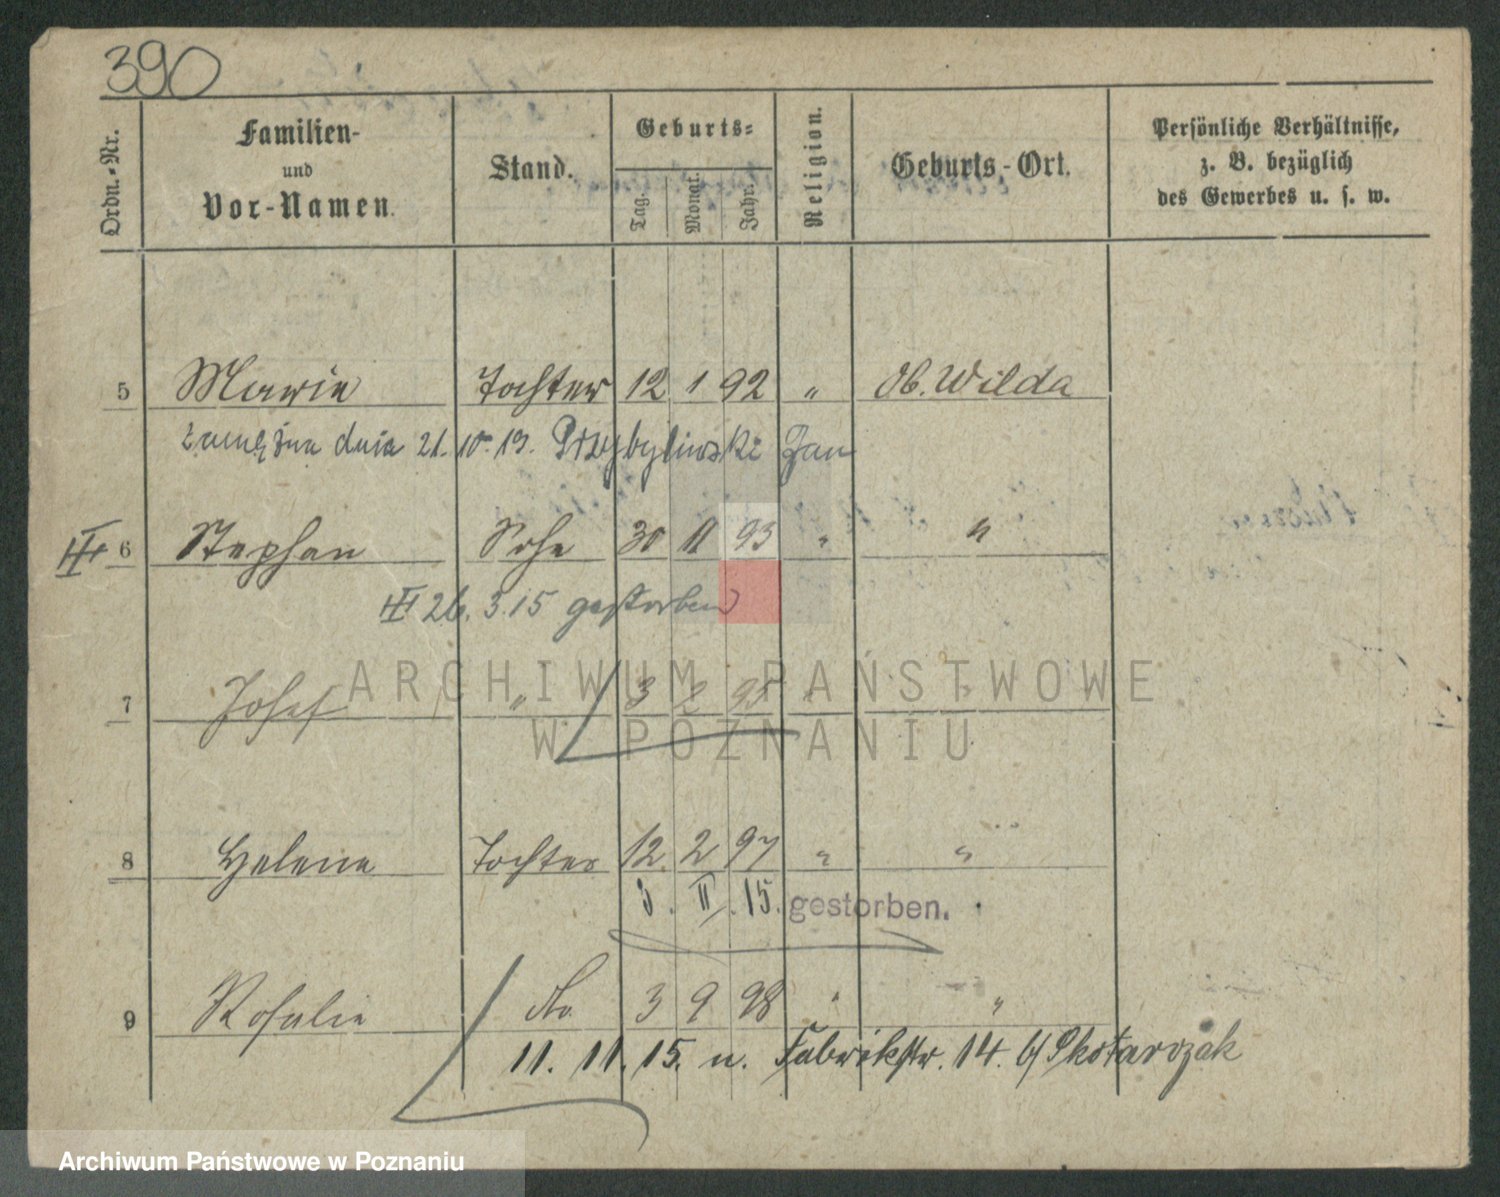 390
Ordn.-Nr. Familien- und Vor-Namen. Stand. Geburts- Tag. Monat. Jahr. Religion. Geburts-Ort. Persönliche Verhältnisse, z. B. bezüglich des Gewerbes u. s. w.
5 Marie Tochter 12 1 92 " Ob. Wilda
zamężna dnia 21. 10. 19. Przybylinski Jan
III 6 Stephan Sohn 30 11 93 " "
III 26. 3. 15 gestorben
7 Josef " 3 2 95 " "
8 Helene Tochter 12 2 97 " "
3. II. 15. gestorben.
9 Rosalie do 3 9 98 " "
11. 11. 15. n. Fabrikstr. 14. b/ Skotarczak
ARCHIWUM PAŃSTWOWE
W POZNANIU
Archiwum Państwowe w Poznaniu